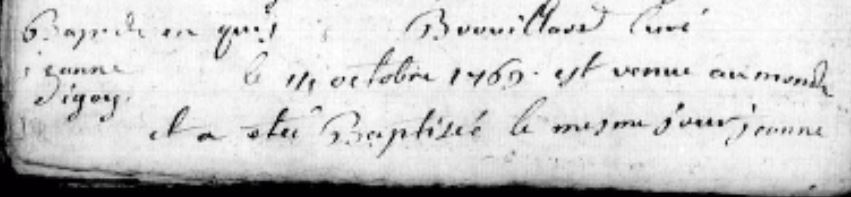 Brouillard Curé
jeanne
Digoy.
le 14 octobre 1769. est venue au monde
et a eté Baptiseé le mesme jour jeanne